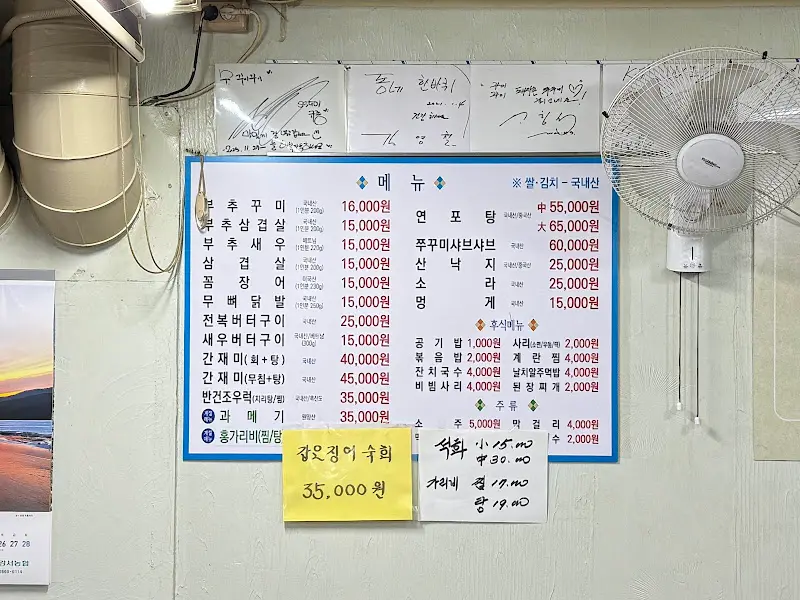 동네 한바퀴
김영철
메뉴
※ 쌀·김치 - 국내산
부추꾸미 국내산 (1인분 200g) 16,000원
부추삼겹살 국내산 (1인분 200g) 15,000원
부추새우 베트남 (1인분 200g) 15,000원
삼겹살 국내산 (1인분 200g) 15,000원
꼼장어 미국산 (1인분 230g) 15,000원
무뼈닭발 국내산 (1인분 250g) 15,000원
전복버터구이 국내산 25,000원
새우버터구이 국내산/베트남 (300g) 15,000원
간재미(회+탕) 국내산 40,000원
간재미(무침+탕) 국내산 45,000원
반건조우럭(지리탕/찜) 국내산/흑산도 35,000원
과메기 원양산 35,000원
홍가리비(찜/탕
연포탕 국내산/중국산 中 55,000원
大 65,000원
쭈꾸미샤브샤브 국내산 60,000원
산낙지 국내산/중국산 25,000원
소라 국내산 25,000원
멍게 국내산 15,000원
후식메뉴
공기밥 1,000원 사리(소면/우동/떡) 2,000원
볶음밥 2,000원 계란찜 4,000원
잔치국수 4,000원 날치알주먹밥 4,000원
비빔사리 4,000원 된장찌개 2,000원
주류
소주 5,000원 막걸리 4,000원
수 2,000원
갑오징어 숙회
35,000원
석화 小 15.000
中 30.000
가리비 찜 17.000
탕 19.000
26 27 28